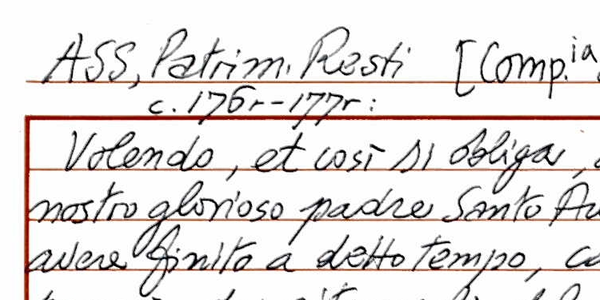 ASS, Patrim. Resti [Comp.ia
c. 176r-177r:
Volendo, et così si obliga,
nostro glorioso padre Santo Au
avere finito a detto tempo, co